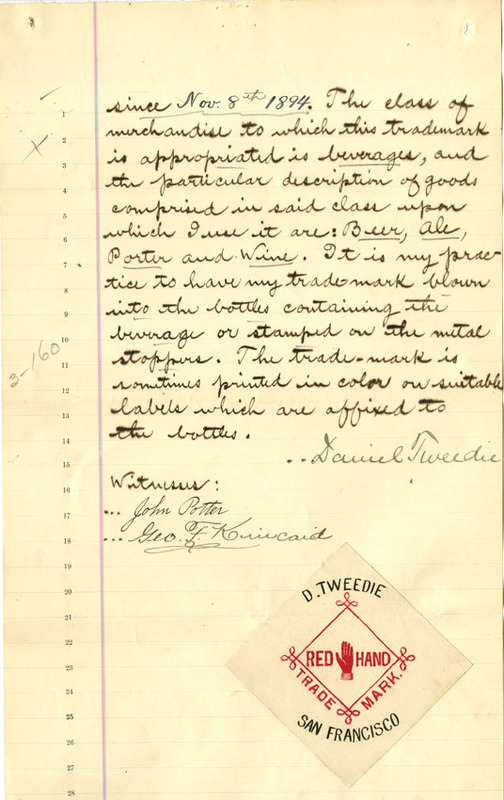 since Nov. 8th 1894. The class of
merchandise to which this trademark
is appropriated is beverages, and
the particular description of goods
comprised in said class upon
which I use it are: Beer, Ale,
Porter and Wine. It is my prac-
tice to have my trade-mark blown
into the bottles containing the
beverage or stamped on the metal
stoppers. The trade-mark is
sometimes printed in color on suitable
labels which are affixed to
the bottles.
Daniel Tweedie
Witnesses:
John Potter
Geo. F. Kincaid
3-160
1
2
3
4
5
6
7
8
9
10
11
12
13
14
15
16
17
18
19
20
21
22
23
24
25
26
27
28
D. TWEEDIE
RED HAND
TRADE MARK.
SAN FRANCISCO